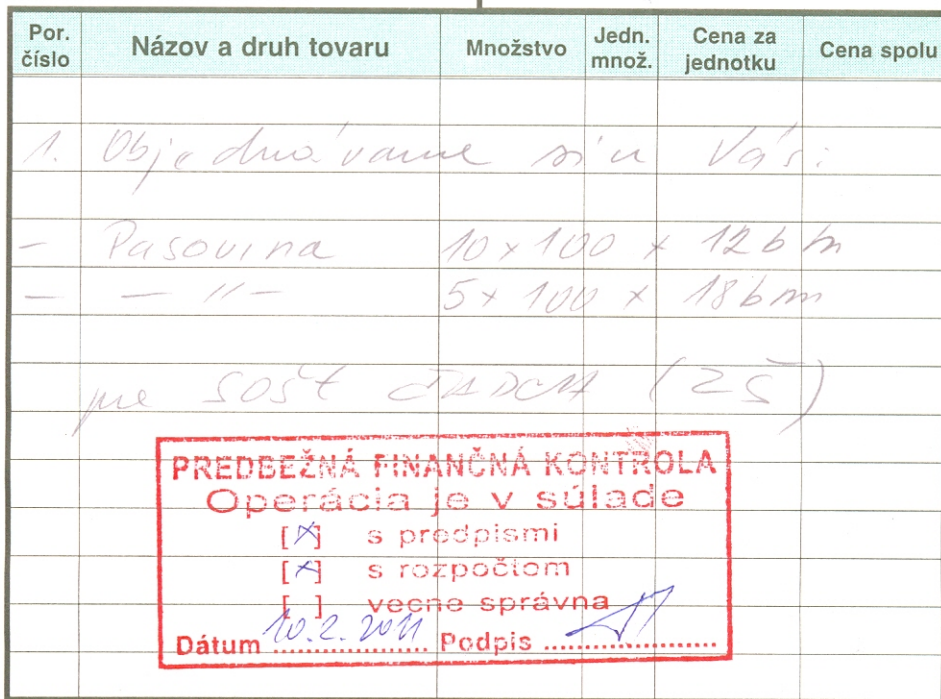 Por. číslo Názov a druh tovaru Množstvo Jedn. množ. Cena za jednotku Cena spolu
1. Objednávame si u Vás:
- Pasovina 10 x 100 x 12 bm
- - 11 - 5 x 100 x 18 bm
pre SOŠt ČADCA (ZŠ)
PREDBEŽNÁ FINANČNÁ KONTROLA
Operácia je v súlade
[x] s predpismi
[x] s rozpočtom
[ ] vecne správna
Dátum 10.2.2011 Podpis